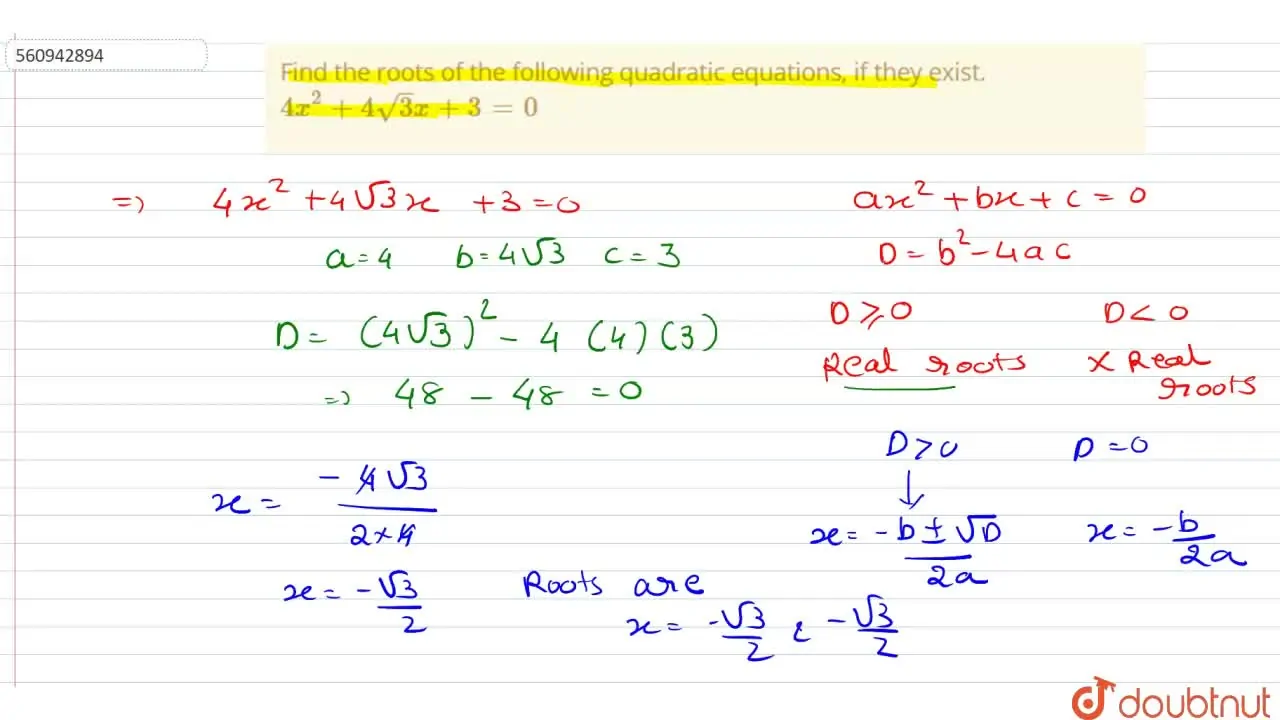 560942894
Find the roots of the following quadratic equations, if they exist.
4x² + 4√3x + 3 = 0
=> 4x² + 4√3x + 3 = 0
a = 4 b = 4√3 c = 3
D = (4√3)² - 4 (4) (3)
=> 48 - 48 = 0
x = -4√3 / 2×4
x = -√3/2
ax² + bx + c = 0
D = b² - 4ac
D ≥ 0 D < 0
Real roots × Real
roots
D > 0 D = 0
↓
x = -b ± √D / 2a x = -b / 2a
Roots are
x = -√3/2 & -√3/2
doubtnut